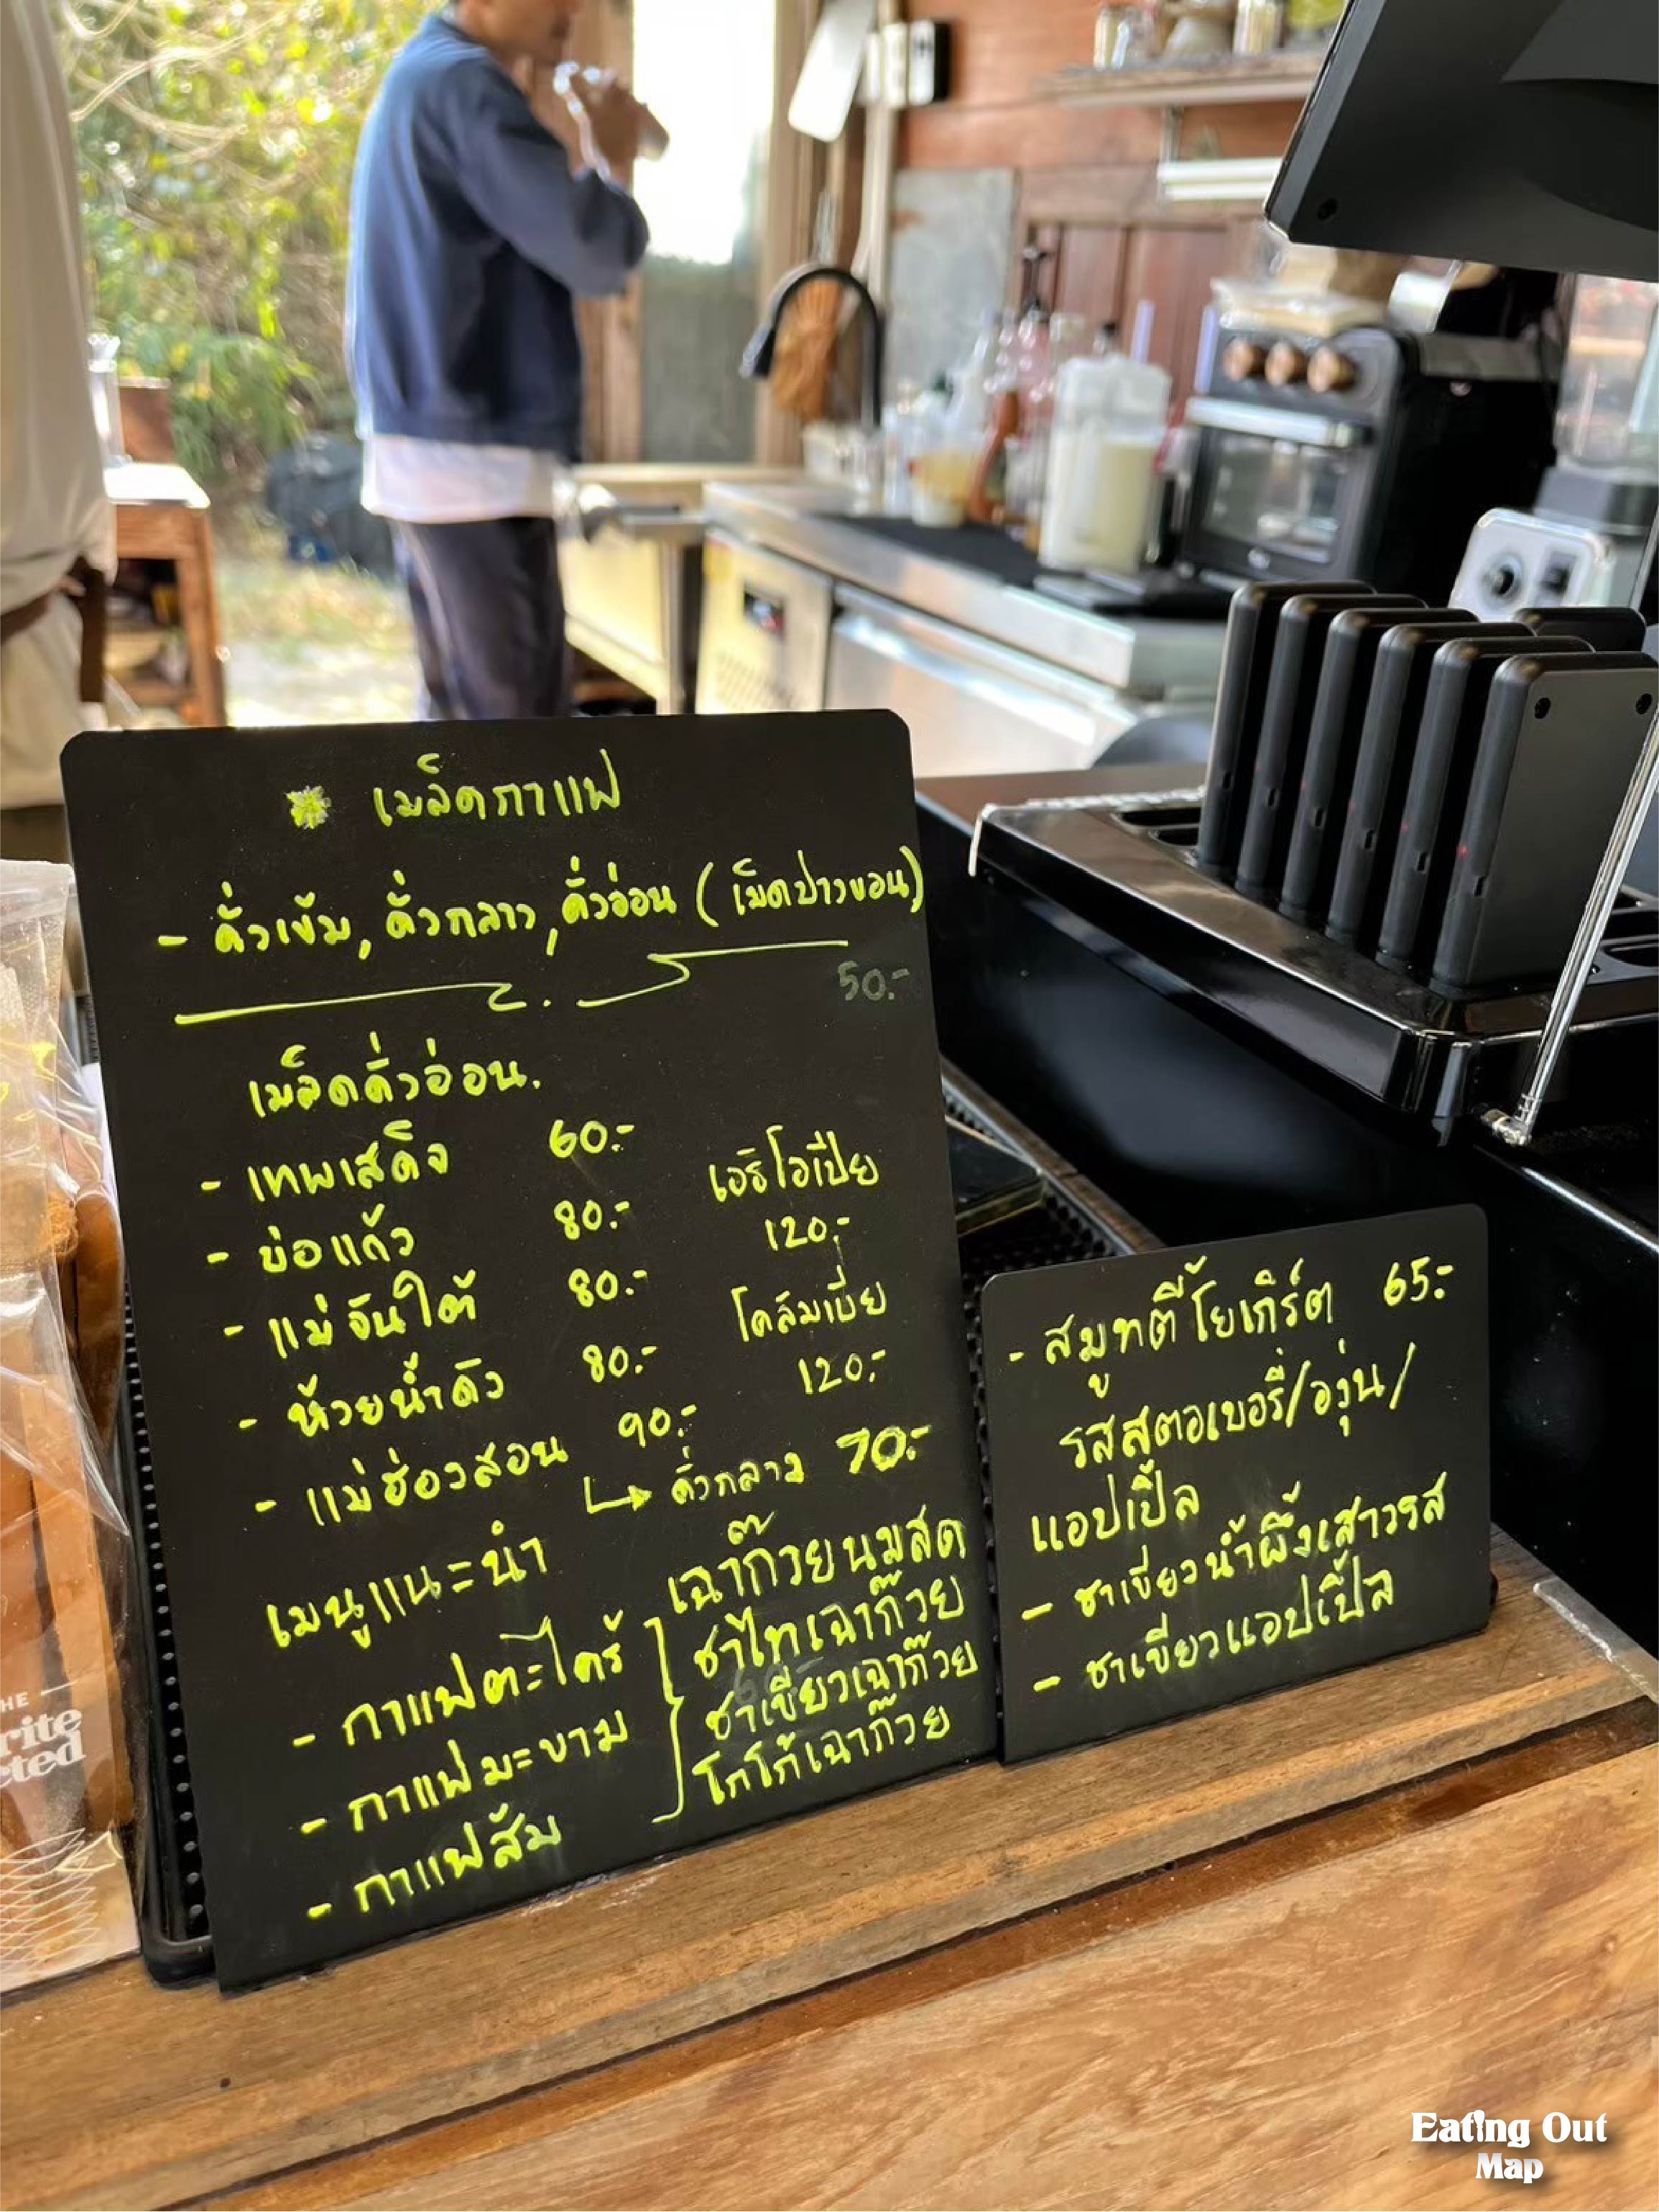 * เมล็ดกาแฟ
- คั่วเข้ม, คั่วกลาง, คั่วอ่อน (เม็ดปางขอน)
50.-
เมล็ดคั่วอ่อน.
- เทพเสด็จ 60.-
- บ่อแก้ว 80.-
- แม่จันใต้ 80.-
- ห้วยน้ำดิว 80.-
- แม่ฮ่องสอน 90.-
คั่วกลาง 70.-
เอธิโอเปีย
120.-
โคลัมเบีย
120.-
เมนูแนะนำ
- กาแฟตะไคร้
- กาแฟมะขาม
- กาแฟส้ม
เฉาก๊วยนมสด
ชาไทเฉาก๊วย
ชาเขียวเฉาก๊วย
โกโก้เฉาก๊วย
- สมูทตี้โยเกิร์ต 65.-
รสสตอเบอรี่/องุ่น/
แอปเปิ้ล
- ชาเขียวน้ำผึ้งเสาวรส
- ชาเขียวแอปเปิ้ล
THE
Eating Out
Map